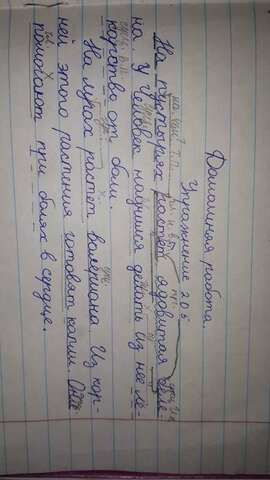 Домашняя работа
Упражнение 205
На пустырях растет ядовитая беле-
на. Человек научился делать из нее ле-
карство от боли.
На лугах растет валериана. Из кор-
ней этого растения готовят капли. Они
помогают при болях в сердце.